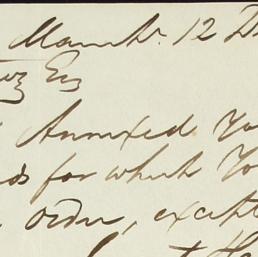 12 D
Esq
Annexed. Yo
ds for which Yo
order, except